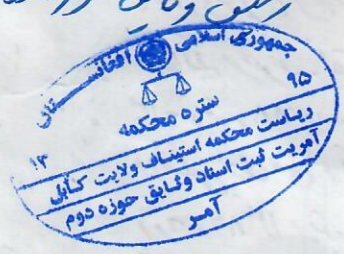 جمهوری اسلامی افغانستان
ستره محکمه
۹۵
۱۳
ریاست محکمه استیناف ولایت کابل
آمریت ثبت اسناد وثایق حوزه دوم
آمر